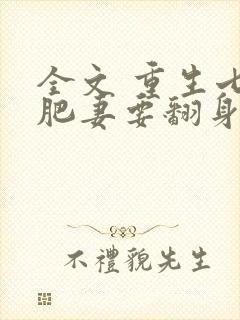 全文 重生七
肥妻要翻身
不禮貌先生